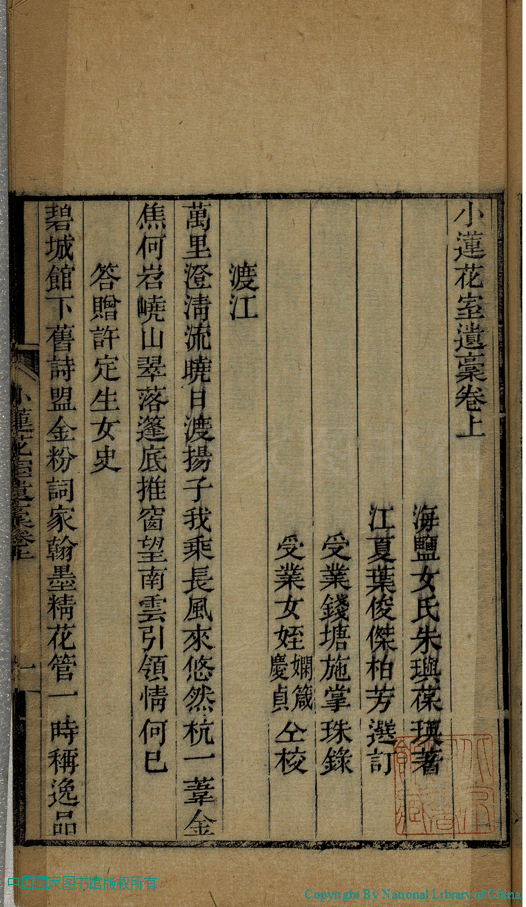 小蓮花室遺稾卷上
海鹽女氏朱璵葆瑛著
江夏葉俊傑柏芳選訂
受業錢塘施掌珠錄
受業女姪嫻箴慶貞仝校
渡江
萬里澄清流曉日渡揚子我乘長風來悠然杭一葦金
焦何岧嶢山翠落蓬底推窗望南雲引領情何已
答贈許定生女史
碧城館下舊詩盟金粉詞家翰墨精花管一時稱逸品
小蓮花室遺稾卷上
一
中国国家图书馆版权所有
Copyright By National Library of China